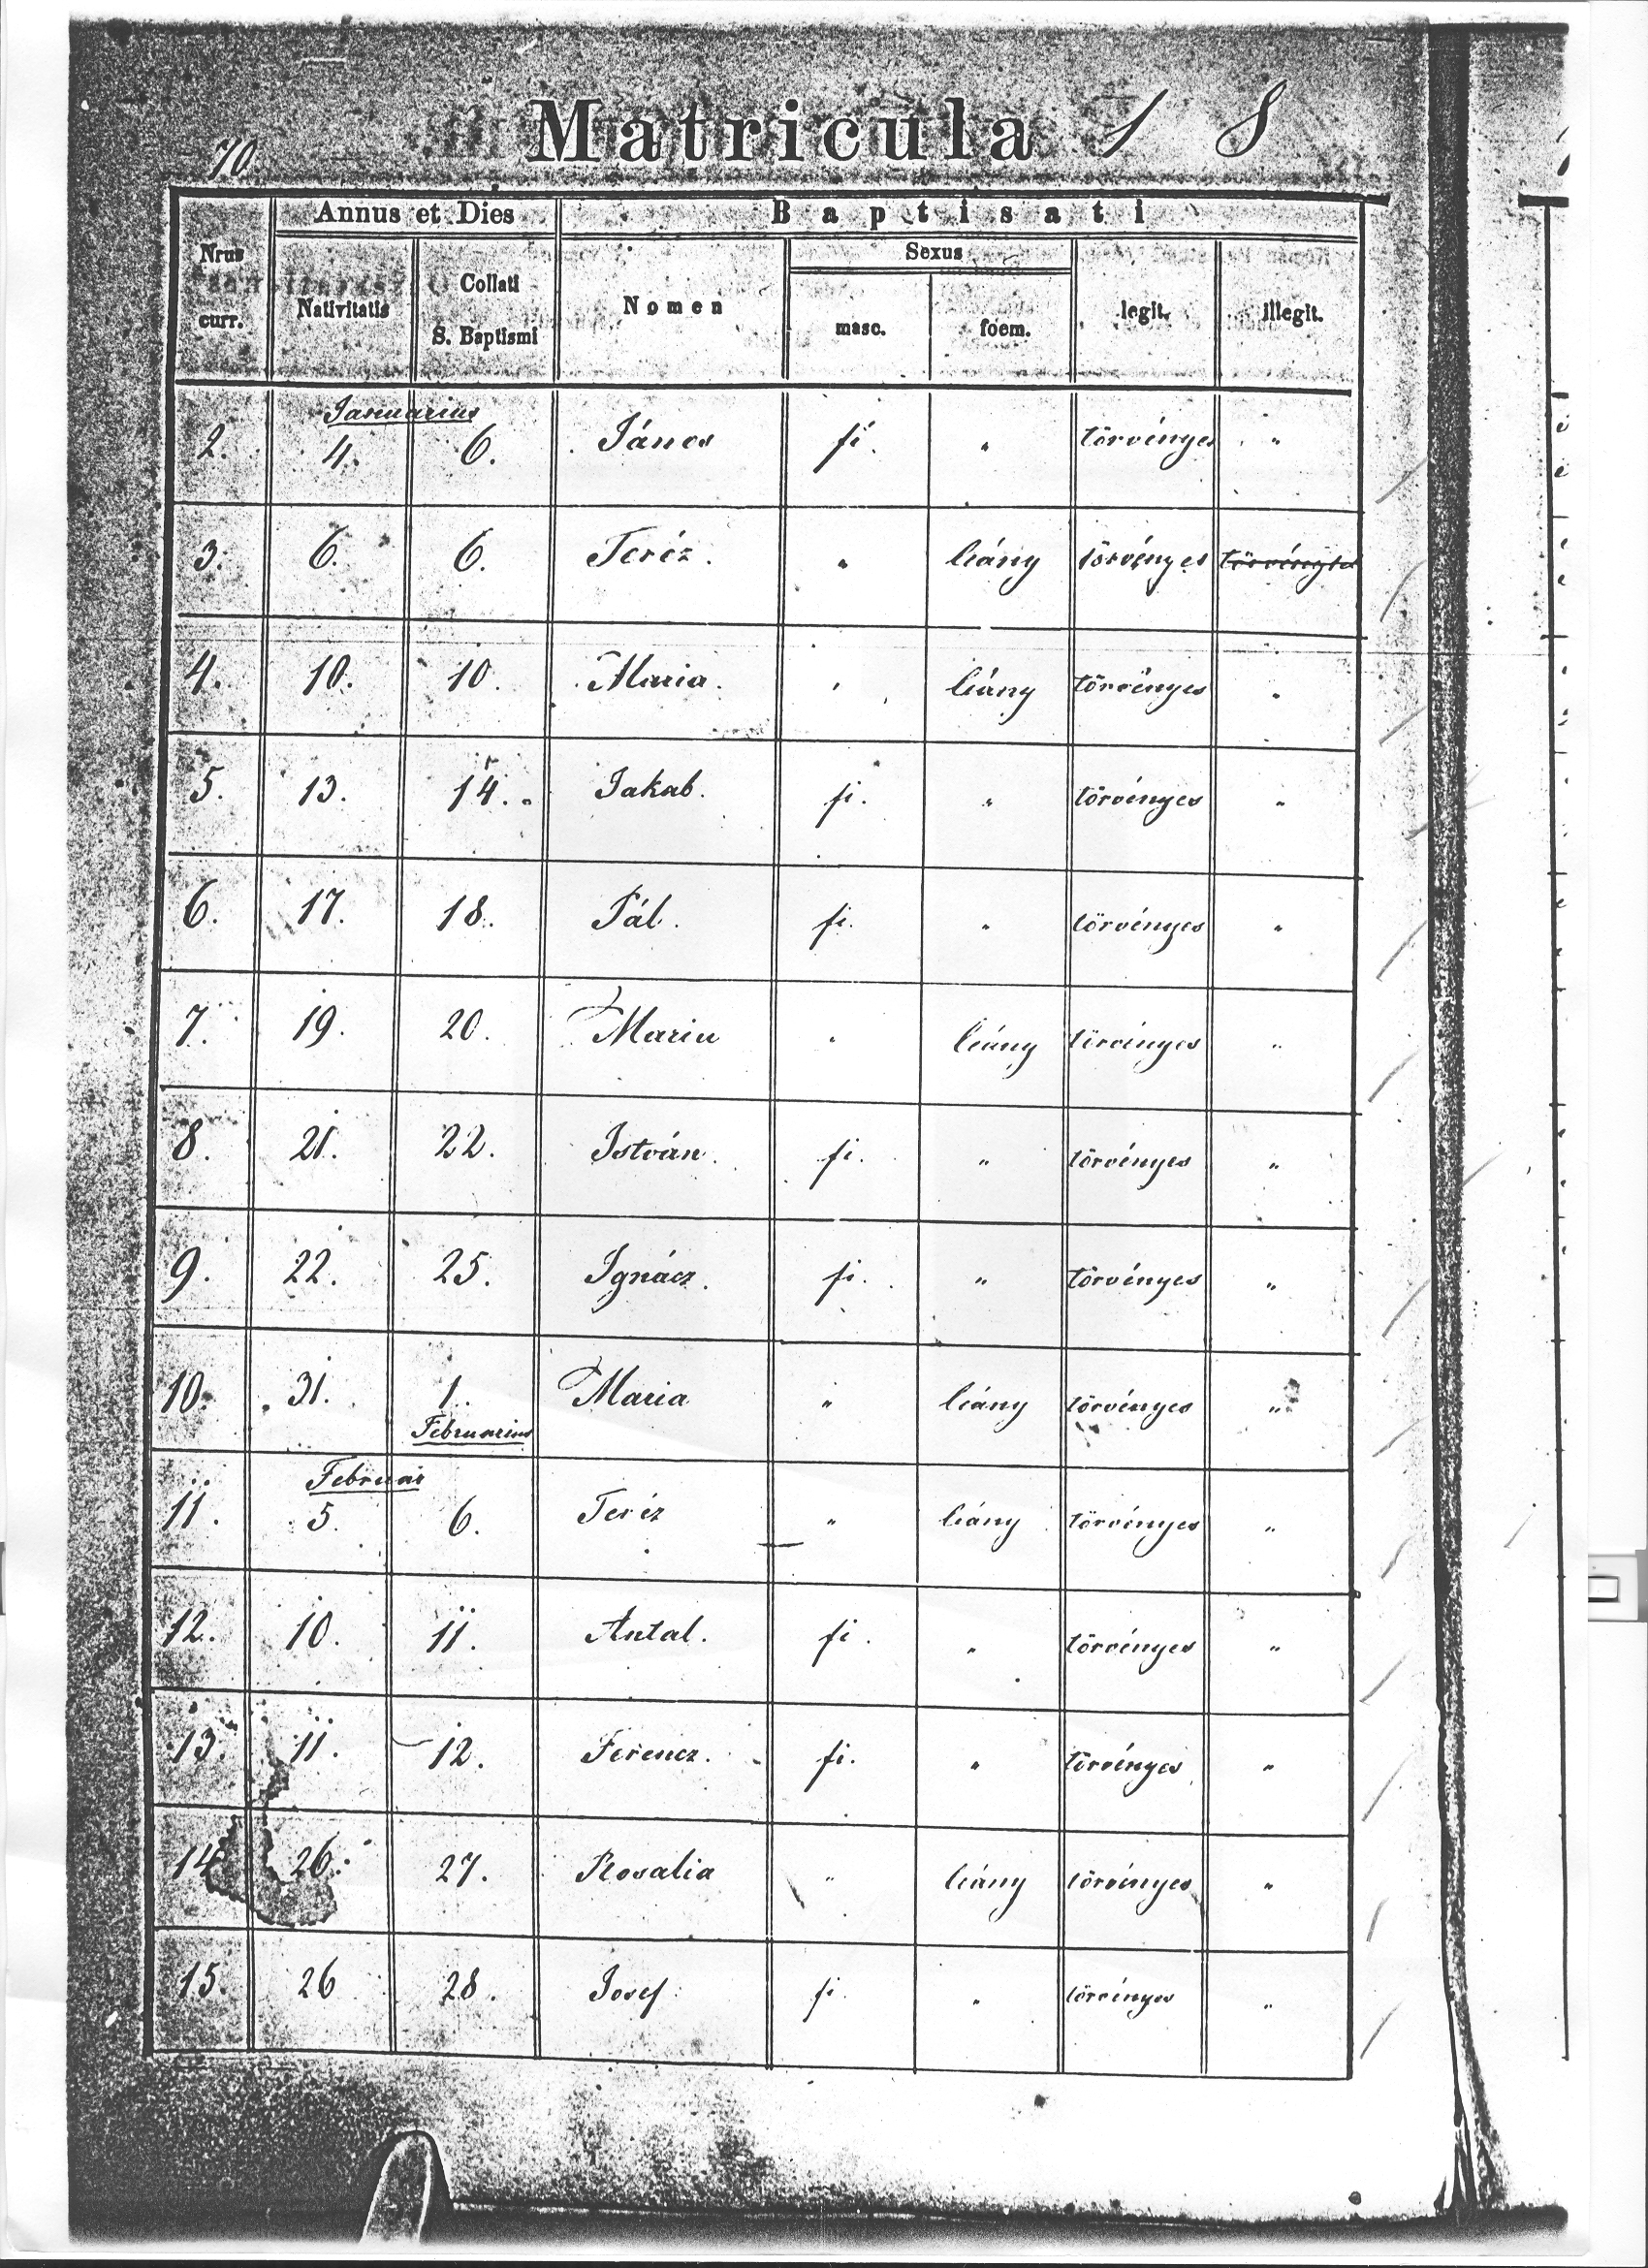 70.
Matricula 1 8
Nrus curr.
Annus et Dies
Baptisati
Nativitatis
Collati S. Baptismi
Nomen
Sexus
masc.
foem.
legit.
illegit.
Januarius
2. 4. 6. János fi. " törvényes "
3. 6. 6. Teréz. " leány törvényes
4. 10. 10. Maria. " leány törvényes "
5. 13. 14. Jakab. fi. " törvényes "
6. 17. 18. Pál. fi. " törvényes "
7. 19. 20. Maria " leány törvényes "
8. 21. 22. István. fi. " törvényes "
9. 22. 25. Ignácz. fi. " törvényes "
10. 31. 1. Maria " leány törvényes "
Februarius
Februar
11. 5. 6. Teréz " leány törvényes "
12. 10. 11. Antal. fi. " törvényes "
13. 11. 12. Ferencz. fi. " törvényes "
14 26. 27. Rosalia " leány törvényes "
15. 26 28. Josef. fi. " törvényes "